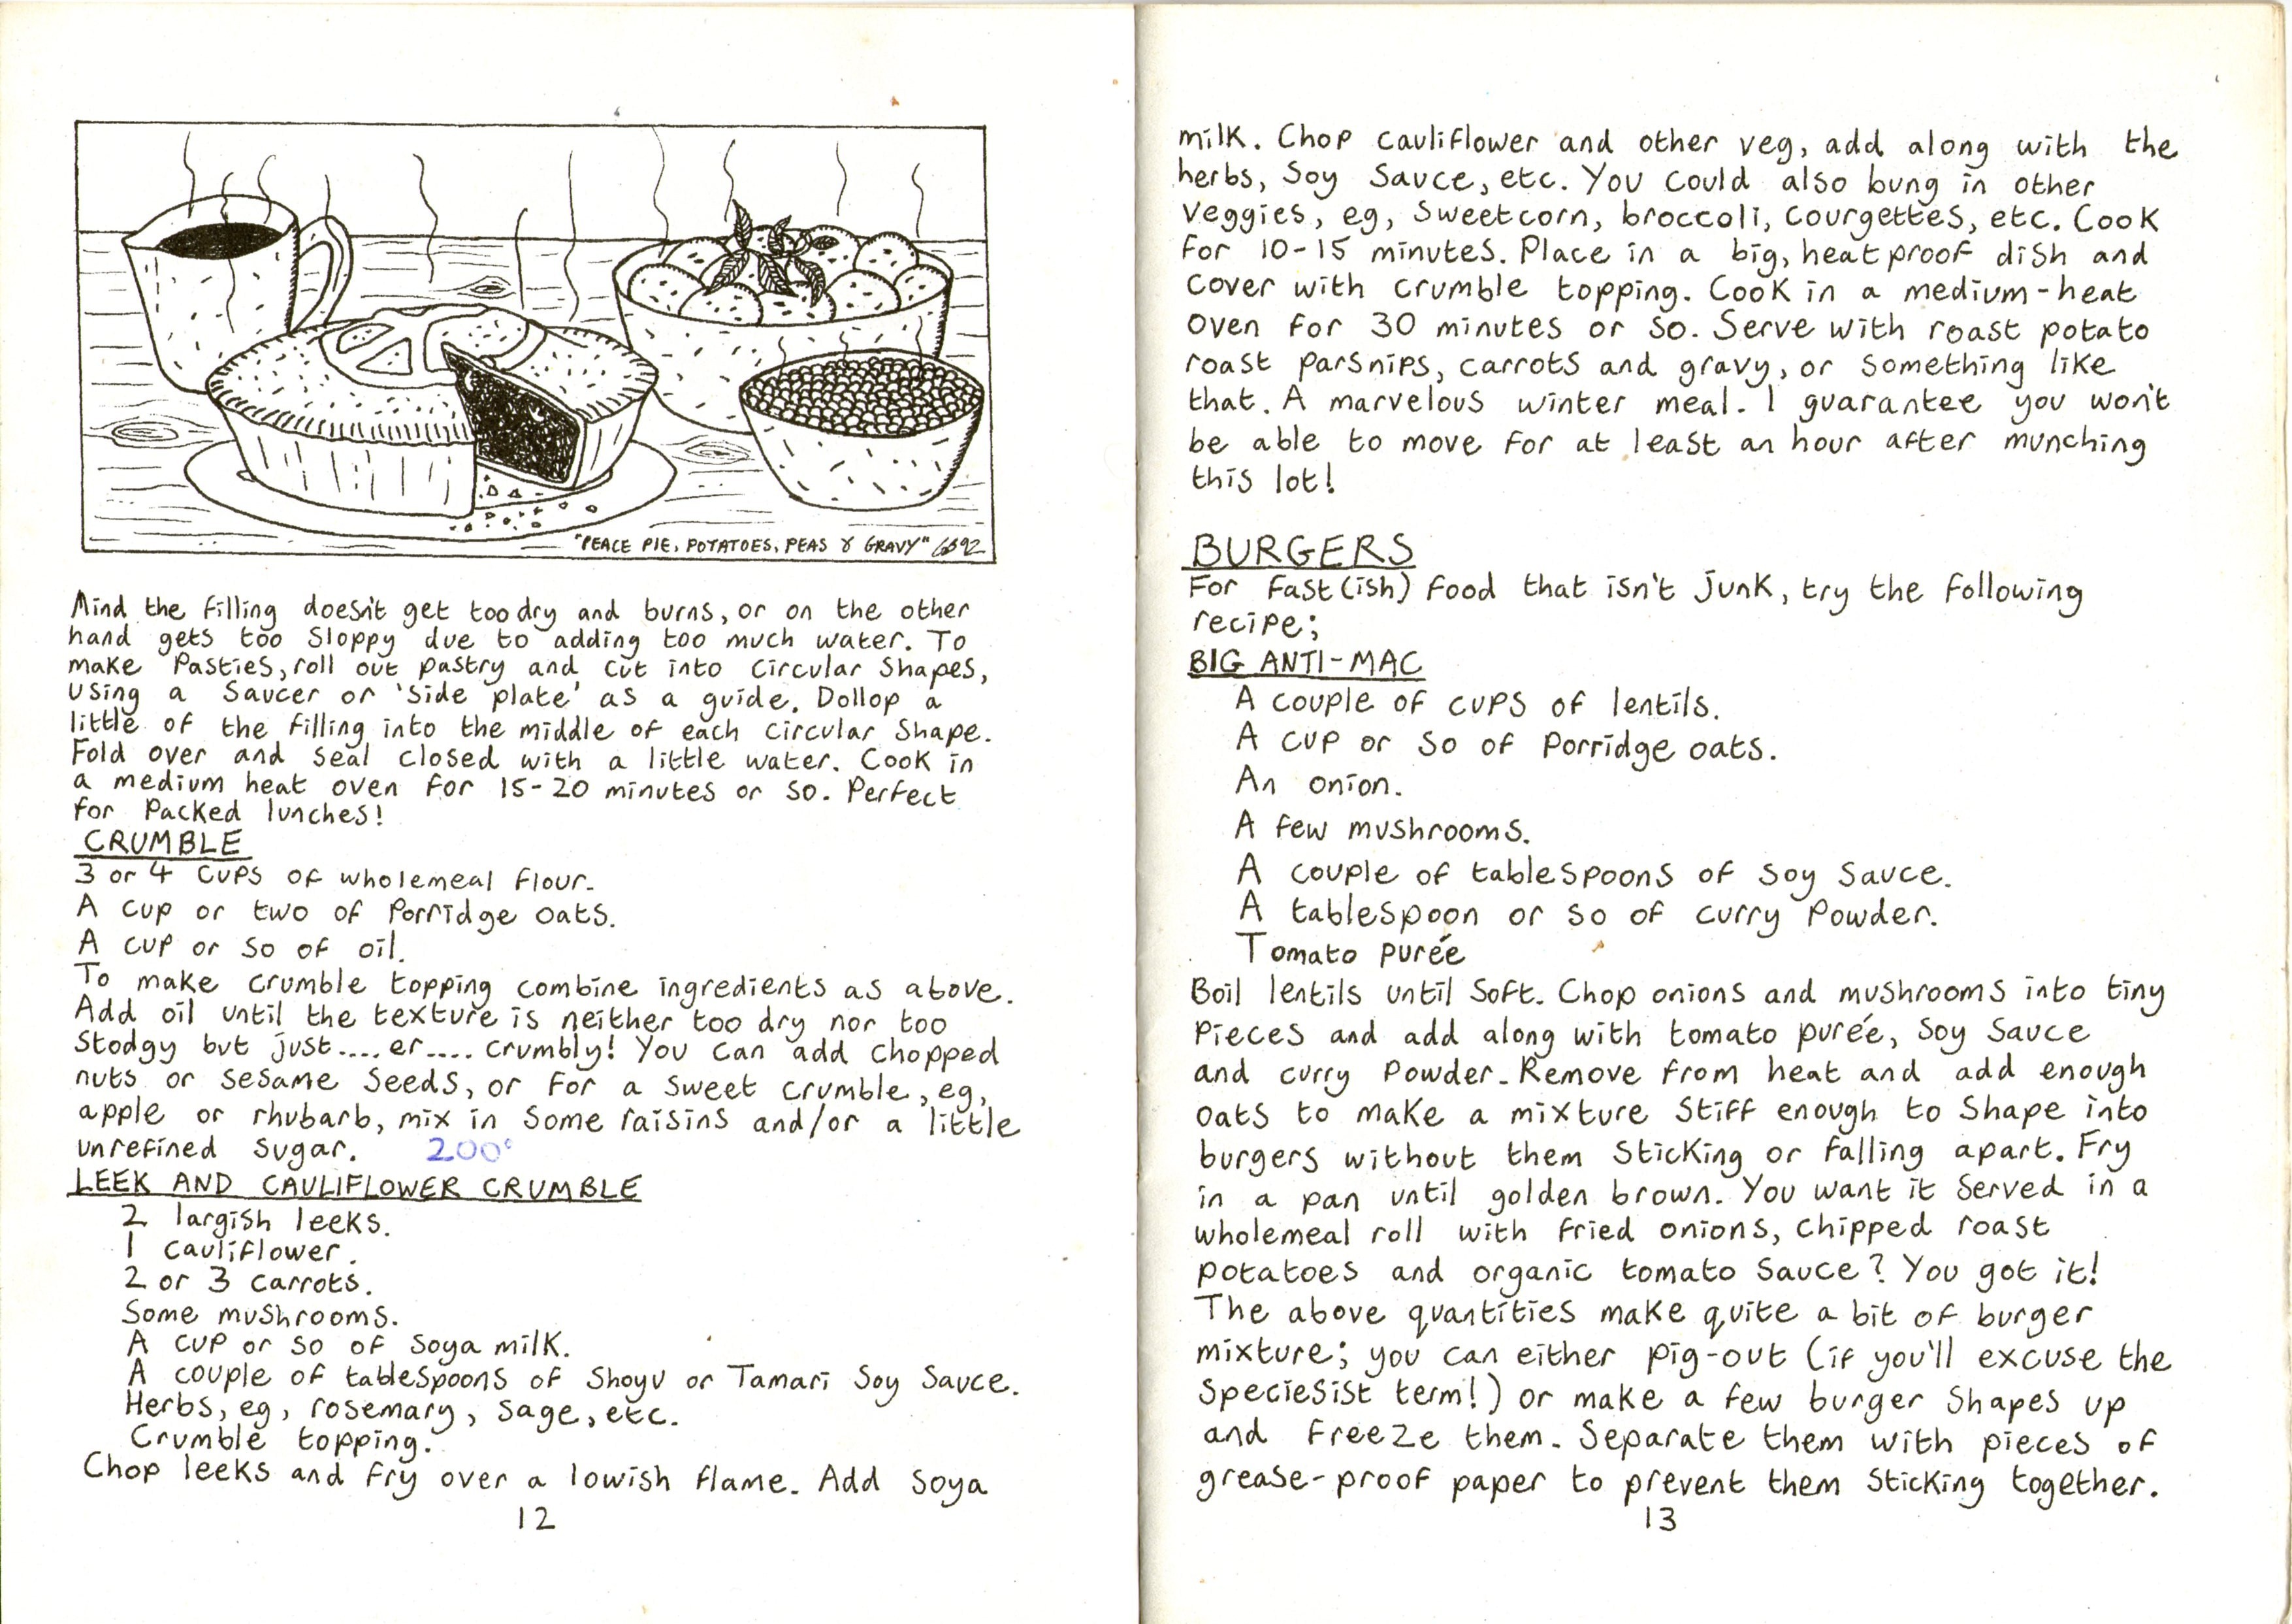 "PEACE PIE, POTATOES, PEAS & GRAVY" GS92
Mind the filling doesn't get too dry and burns, or on the other
hand gets too sloppy due to adding too much water. To
make Pasties, roll out pastry and cut into circular shapes,
using a saucer or 'side plate' as a guide. Dollop a
little of the filling into the middle of each circular shape.
Fold over and seal closed with a little water. Cook in
a medium heat oven for 15-20 minutes or so. Perfect
for packed lunches!
CRUMBLE
3 or 4 cups of wholemeal flour.
A cup or two of Porridge oats.
A cup or so of oil.
To make crumble topping combine ingredients as above.
Add oil until the texture is neither too dry nor too
stodgy but just.... er.... crumbly! You can add chopped
nuts or sesame seeds, or for a sweet crumble, eg,
apple or rhubarb, mix in some raisins and/or a little
unrefined sugar. 200°
LEEK AND CAULIFLOWER CRUMBLE
2 largish leeks.
1 cauliflower.
2 or 3 carrots.
Some mushrooms.
A cup or so of soya milk.
A couple of tablespoons of Shoyu or Tamari Soy Sauce.
Herbs, eg, rosemary, sage, etc.
Crumble topping.
Chop leeks and fry over a lowish flame. Add soya
12
milk. Chop cauliflower and other veg, add along with the
herbs, soy sauce, etc. You could also bung in other
veggies, eg, sweetcorn, broccoli, courgettes, etc. Cook
for 10-15 minutes. Place in a big, heatproof dish and
cover with crumble topping. Cook in a medium-heat
oven for 30 minutes or so. Serve with roast potato
roast parsnips, carrots and gravy, or something like
that. A marvelous winter meal. I guarantee you won't
be able to move for at least an hour after munching
this lot!
BURGERS
For fast(ish) food that isn't junk, try the following
recipe;
BIG ANTI-MAC
A couple of cups of lentils.
A cup or so of Porridge oats.
An onion.
A few mushrooms.
A couple of tablespoons of soy sauce.
A tablespoon or so of curry Powder.
Tomato purée
Boil lentils until soft. Chop onions and mushrooms into tiny
pieces and add along with tomato purée, soy sauce
and curry powder. Remove from heat and add enough
oats to make a mixture stiff enough to shape into
burgers without them sticking or falling apart. Fry
in a pan until golden brown. You want it served in a
wholemeal roll with fried onions, chipped roast
potatoes and organic tomato sauce? You got it!
The above quantities make quite a bit of burger
mixture; you can either pig-out (if you'll excuse the
speciesist term!) or make a few burger shapes up
and freeze them. Separate them with pieces of
grease-proof paper to prevent them sticking together.
13